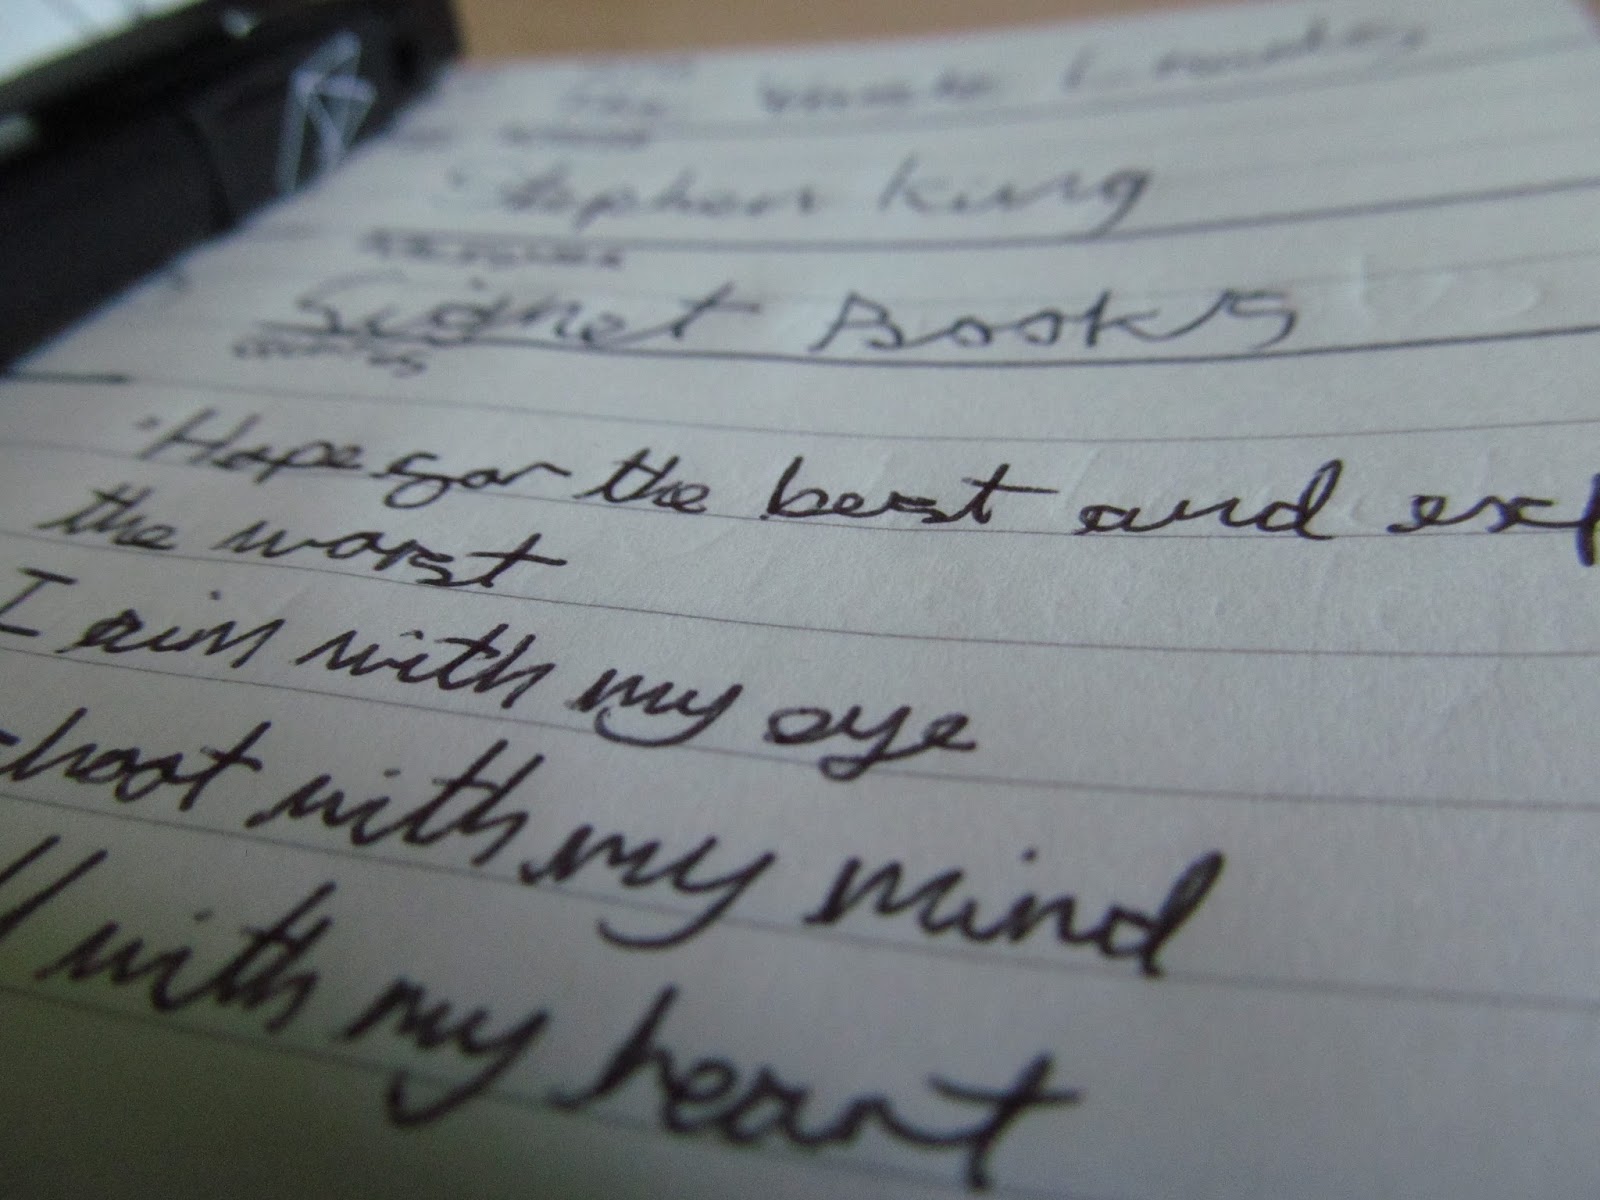 The Waste Lands
Stephen King
Signet Books
Hope for the best and exp
the worst
I aim with my eye
shoot with my mind
ll with my heart